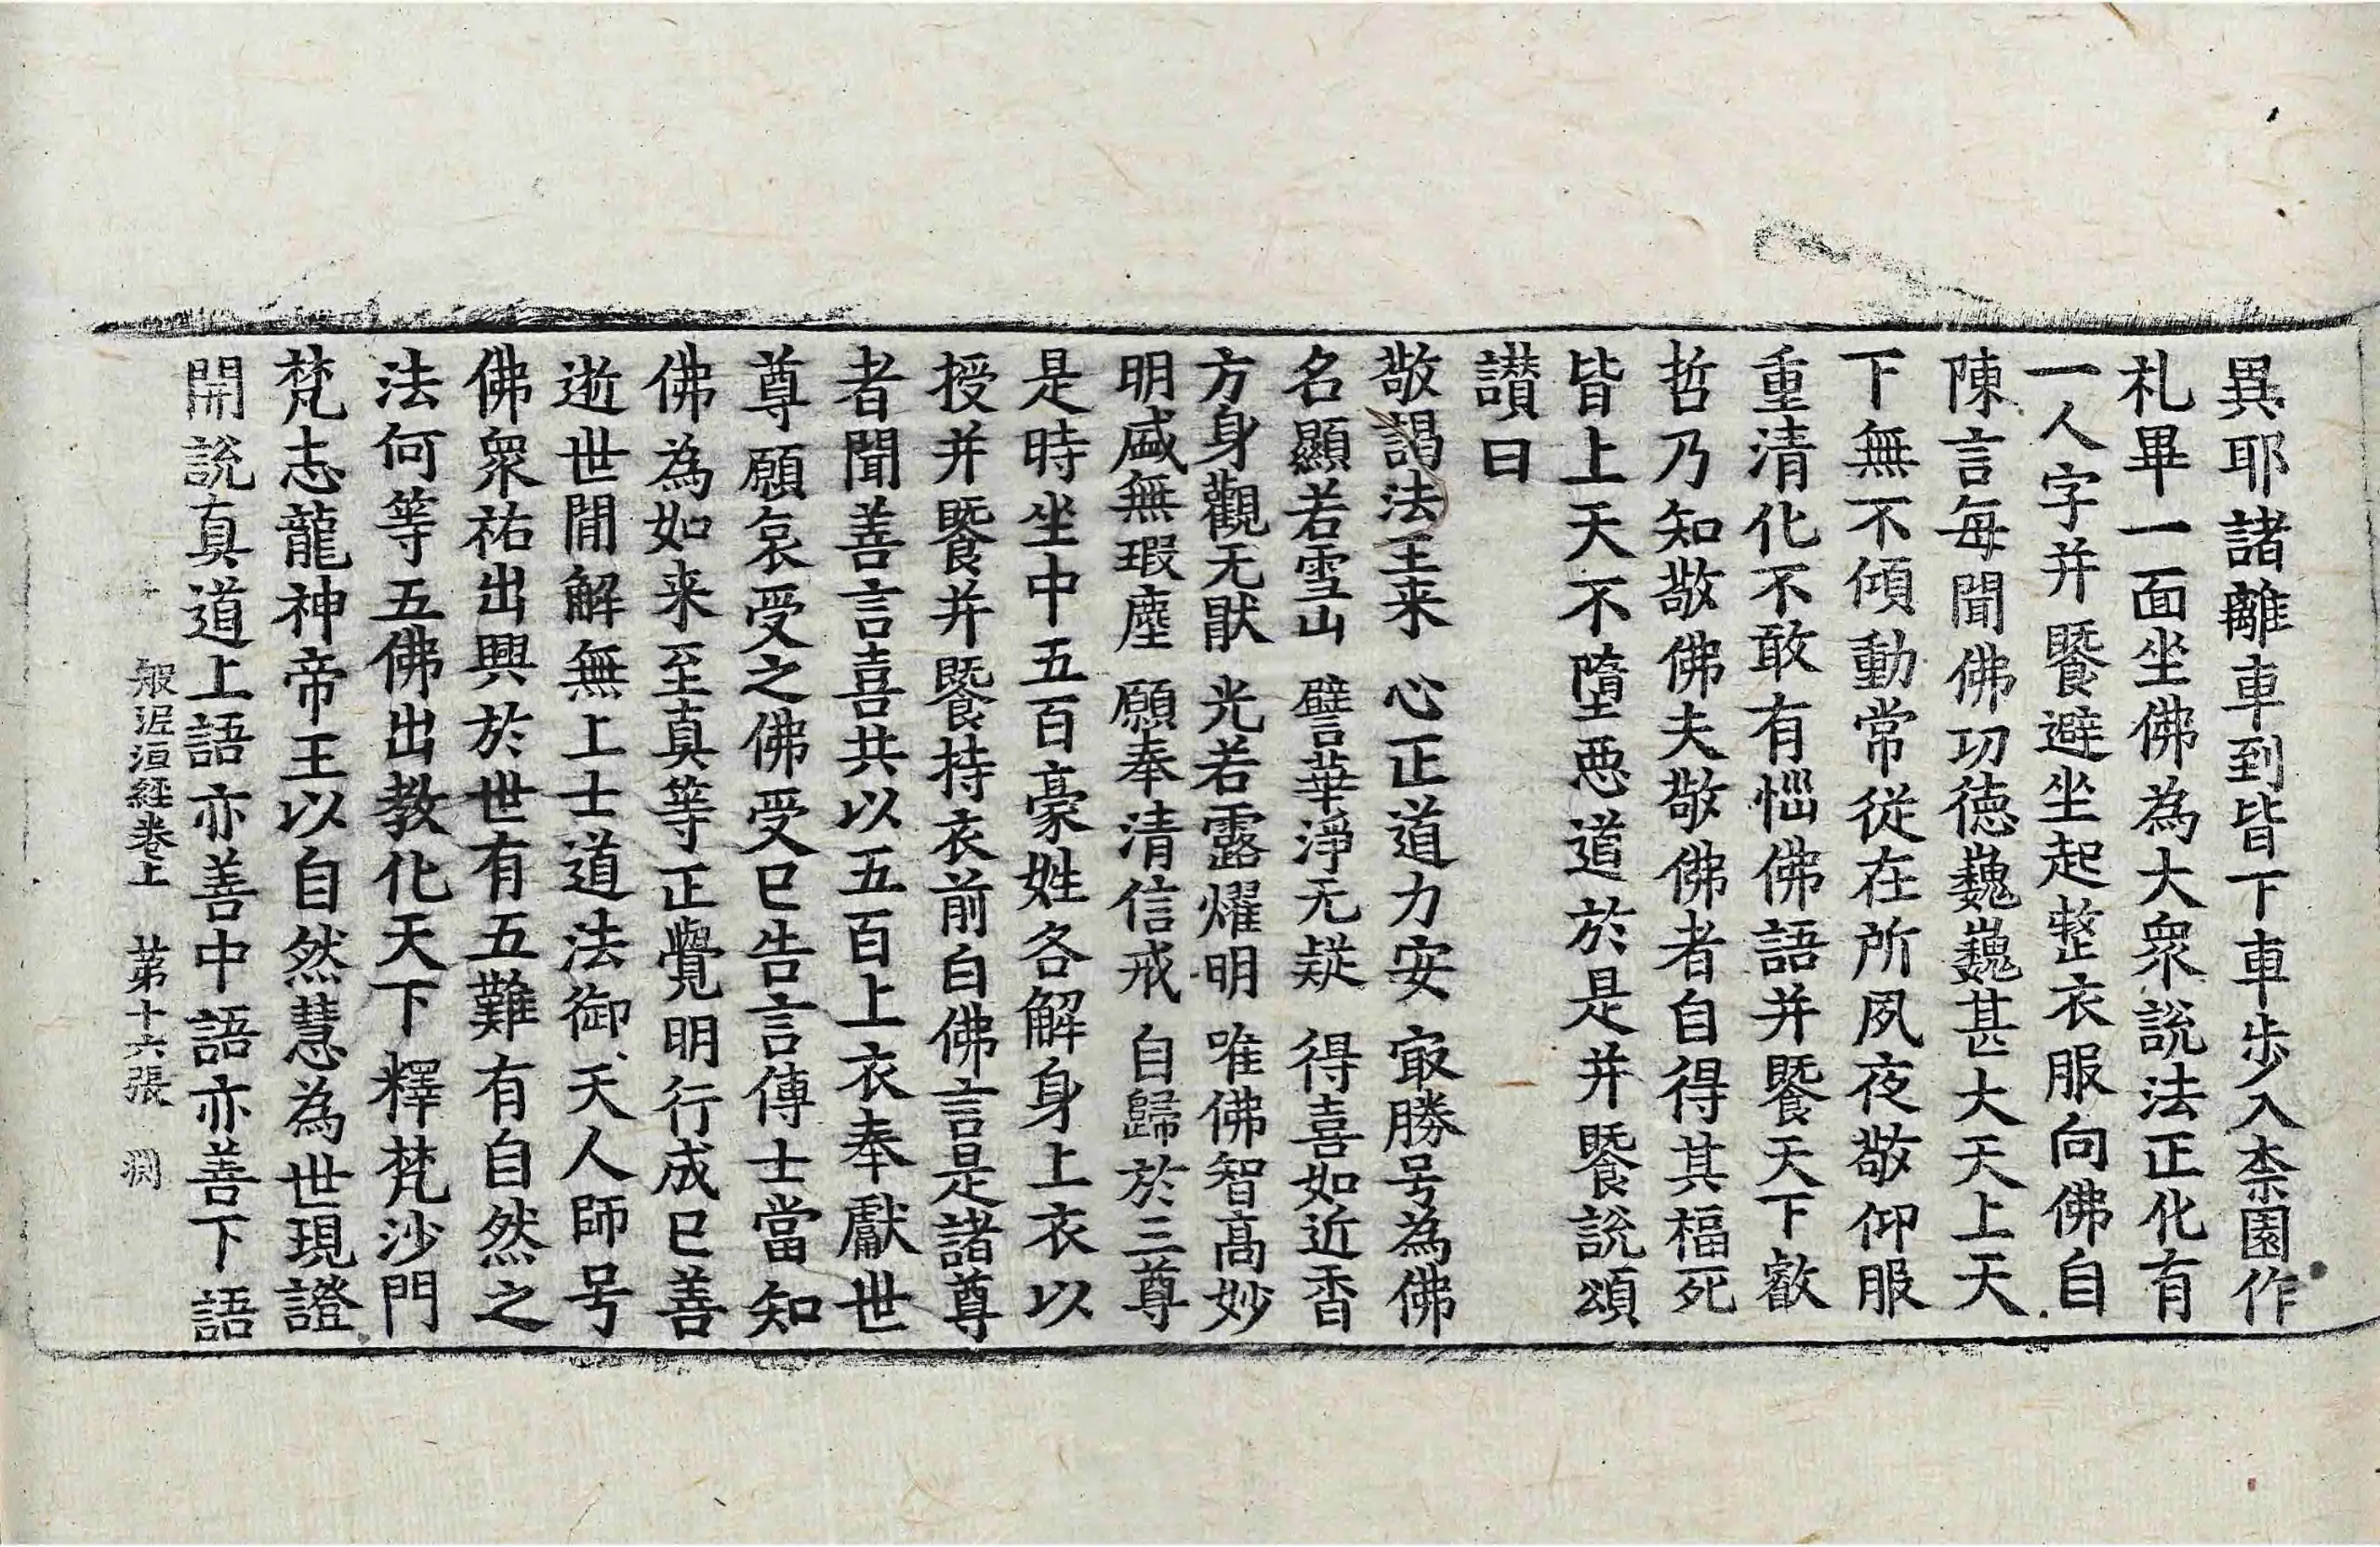 異耶諸離車到皆下車步入柰園作
礼畢一面坐佛為大衆說法正化有
一人字并暨避坐起整衣服向佛自
陳言每聞佛功德巍巍甚大天上天
下無不傾動常從在所夙夜敬仰服
重清化不敢有惱佛語并暨天下叡
哲乃知敬佛夫敬佛者自得其福死
皆上天不墮惡道於是并暨說頌
讃曰
敬謁法王来 心正道力安 㝡勝号為佛
名顯若雪山 譬華淨无疑 得喜如近香
方身觀无猒 光若露燿明 唯佛智高妙
明盛無瑕塵 願奉清信戒 自歸於三尊
是時坐中五百豪姓各解身上衣以
授并暨并暨持衣前白佛言是諸尊
者聞善言喜共以五百上衣奉獻世
尊願哀受之佛受已告言傳士當知
佛為如来至真等正覺明行成已善
逝世間解無上士道法御天人師号
佛衆祐出興於世有五難有自然之
法何等五佛出教化天下釋梵沙門
梵志龍神帝王以自然慧為世現證
開說真道上語亦善中語亦善下語
般泥洹經卷上 苐十六張 渕